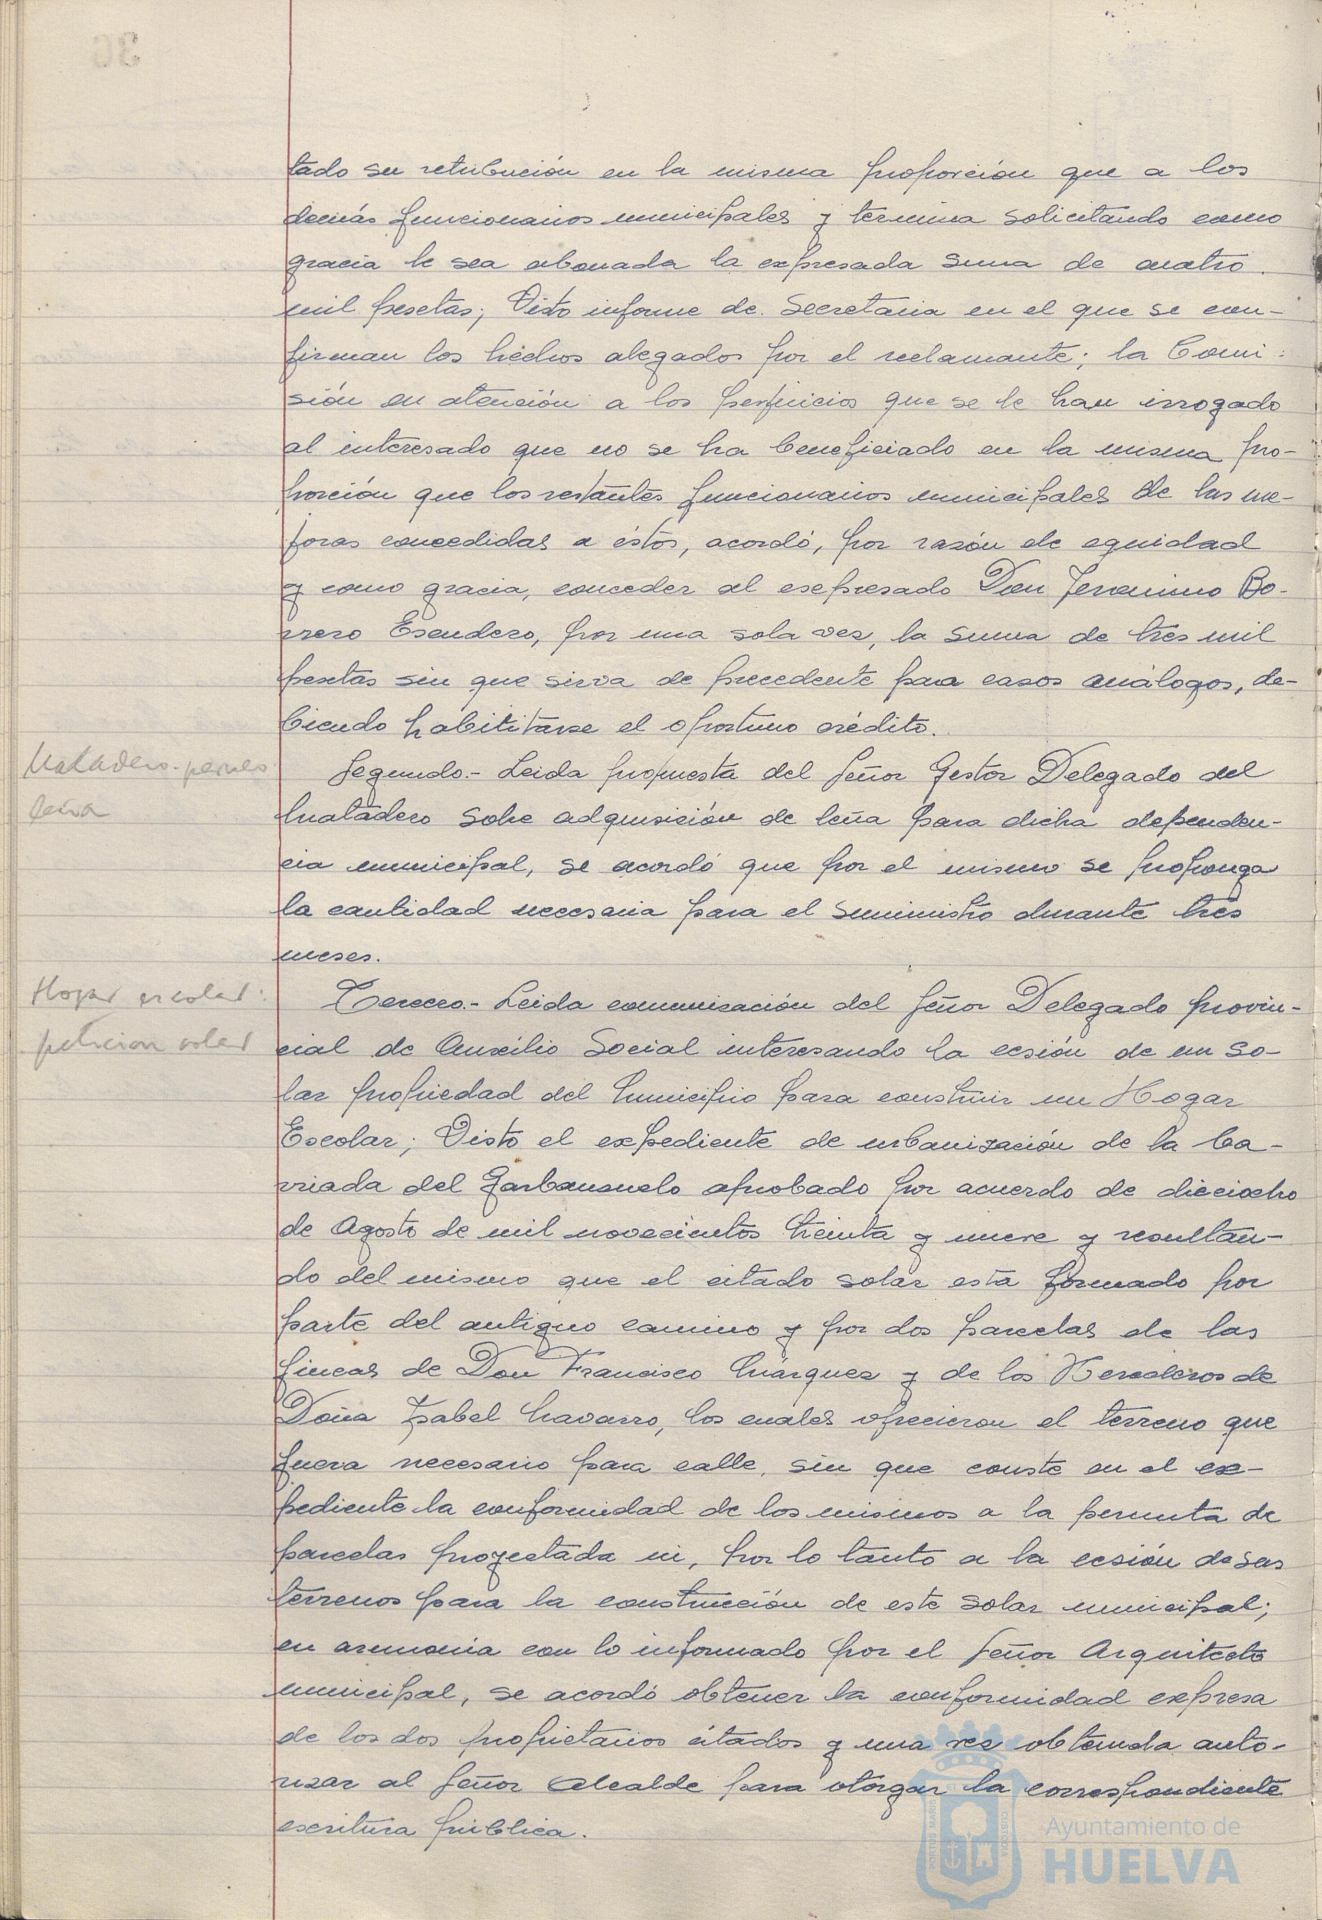 tado su retribución en la misma proporción que a los
demás funcionarios municipales y termina solicitando como
gracia le sea abonada la expresada suma de cuatro
mil pesetas; Visto informe de Secretaria en el que se con-
firman los hechos alegados por el reclamante; la Comi-
sión en atención a los perjuicios que se le han irrogado
al interesado que no se ha beneficiado en la misma pro-
porción que los restantes funcionarios municipales de las me-
joras concedidas a éstos, acordó, por razón de equidad
y como gracia, conceder al expresado Don Jeronimo Bo-
rrero Escudero, por una sola vez, la suma de tres mil
pesetas sin que sirva de precedente para casos análogos, de-
biendo habilitarse el oportuno crédito.
Matadero-
leña
Segundo.- Leida propuesta del Señor Gestor Delegado del
Matadero sobre adquisición de leña para dicha dependen-
cia municipal, se acordó que por el mismo se proponga
la cantidad necesaria para el suministro durante tres
meses.
Hogar escolar:
peticion solar
Tercero.- Leida comunicación del Señor Delegado provin-
cial de Auxilio Social interesando la cesión de un so-
lar propiedad del Municipio para construir un Hogar
Escolar; Visto el expediente de urbanización de la ba-
rriada del Garbanzuelo aprobado por acuerdo de dieciocho
de Agosto de mil novecientos treinta y nueve y resultan-
do del mismo que el citado solar está formado por
parte del antiguo camino y por dos parcelas de las
fincas de Don Francisco Márquez y de los Herederos de
Doña Isabel Navarro, los cuales ofrecieron el terreno que
fuera necesario para calle, sin que conste en el ex-
pediente la conformidad de los mismos a la permuta de
parcelas proyectada ni, por lo tanto a la cesión de sus
terrenos para la construcción de este solar municipal;
en armonia con lo informado por el Señor Arquitecto
municipal, se acordó obtener la conformidad expresa
de los dos propietarios citados y una vez obtenida auto-
rizar al Señor Alcalde para otorgar la correspondiente
escritura pública.
Ayuntamiento de
HUELVA